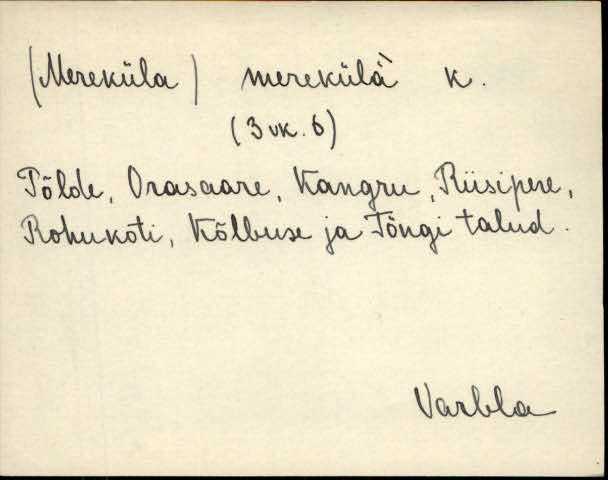 (Mereküla) mereküla` k.
(3 vk. 6)
Põlde, Orasaare, Kangru, Riisipere,
Rohukoti, Kõlbuse ja Tõngi talud.
Varbla